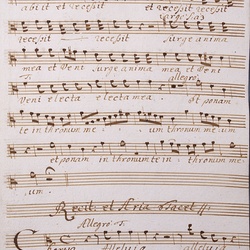 abit et recessit et recessit
largo. Solo
recessit recessit surge anima
mea et veni surge anima mea et veni
allegro
veni electa electa mea. et ponam
te in thronum me um thronum me um
et ponam in thronum te in thronum me
um.
Recit. et Aria tacet
Allegro. T.
alleluja alleluja